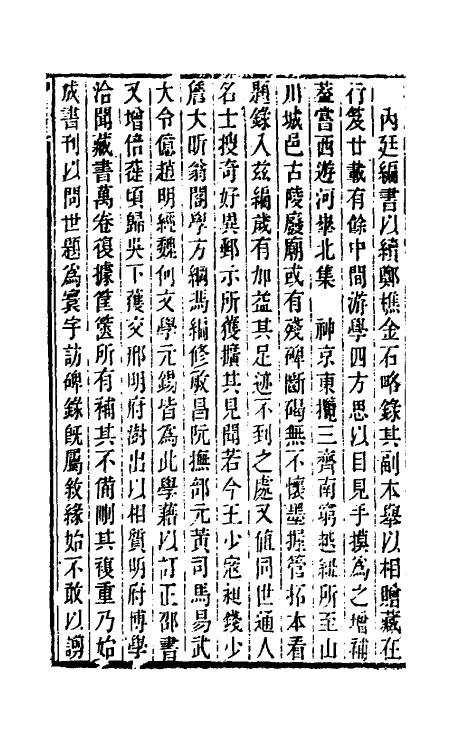 內廷編書以續鄭樵金石略錄其副本舉以相贈藏在
行笈廿載有餘中間游學四方思以目見手摸為之增補
蓋嘗西遊河華北集　神京東攬三齊南窮越紐所至山
川城邑古陵廢廟或有殘碑斷碣無不懷墨握管拓本看
題錄入茲編歲有加益其足迹不到之處又值同世通人
名士搜奇好異郵示所獲擴其見聞若今王少寇昶錢少
詹大昕翁閣學方綱馮編修敏昌阮撫部元黃司馬易武
大令億趙明經魏何文學元錫皆為此學藉以訂正邵書
又增倍蓰頃歸吳下獲交邢明府澍出以相質明府博學
洽聞藏書萬卷復據筐篋所有補其不備刪其複重乃始
成書刊以問世題為寰宇訪碑錄旣屬敘緣始不敢以謭